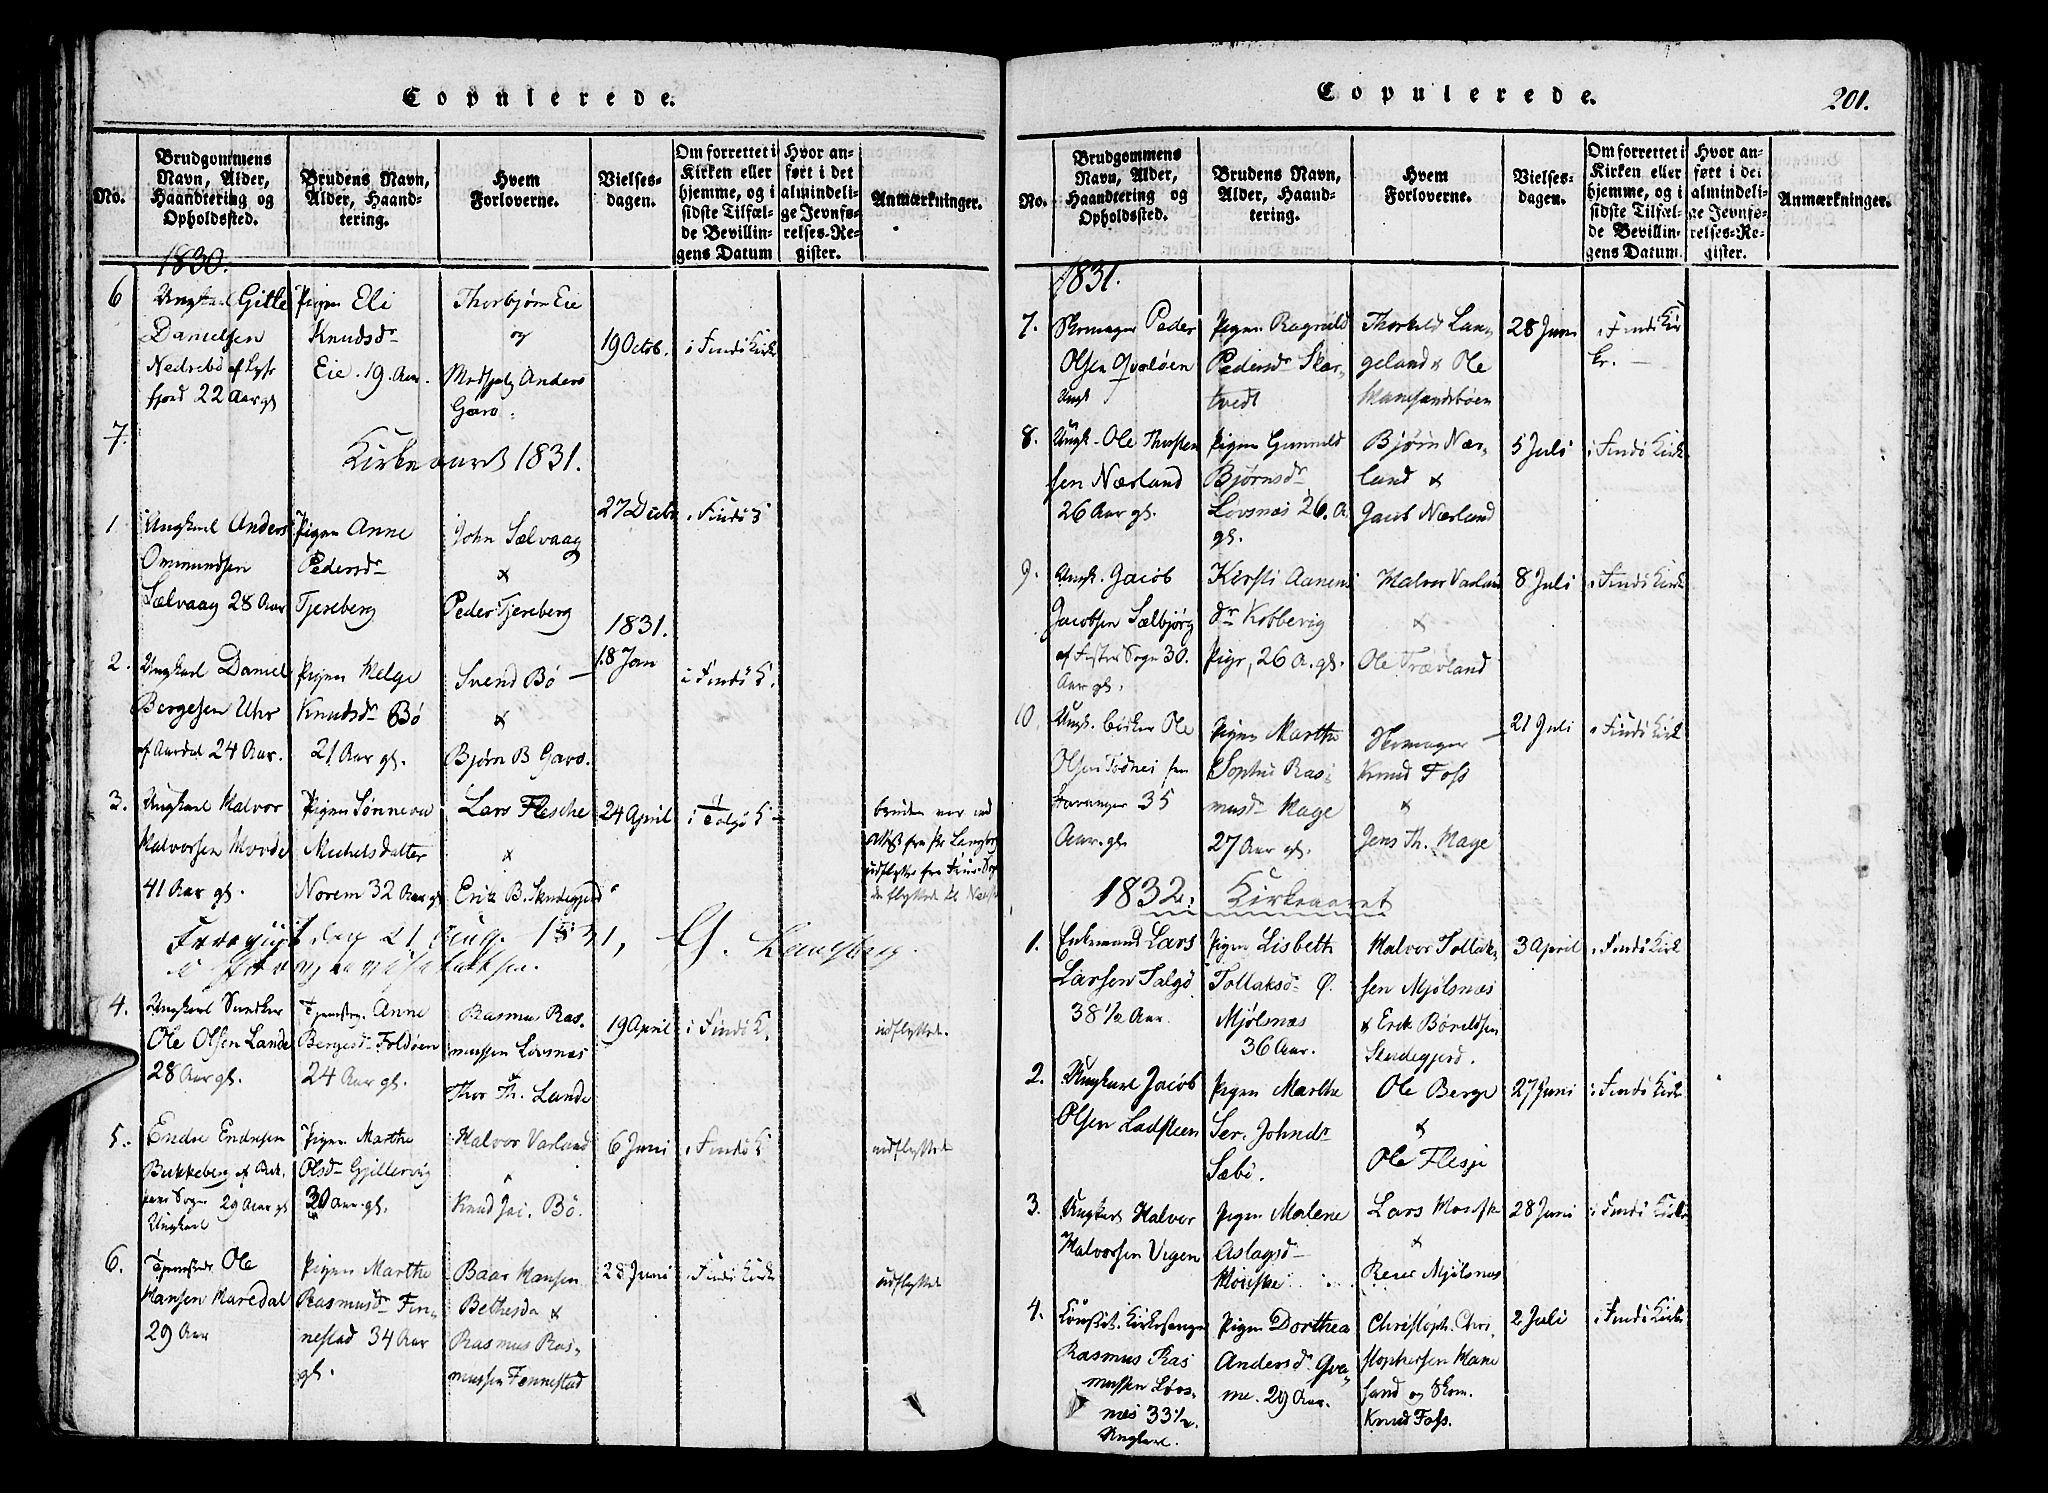 Copulerede.
No.
Brudgommens
Navn, Alder,
Haandtering og
Opholdssted.
Brudens Navn,
Alder, Haand-
tering.
Hvem
Forloverne.
Vielses-
dagen.
Om forrettet i
Kirken eller
hjemme, og i
sidste Tilfæl-
de Bevillin-
gens Datum
Hvor an-
ført i det
almindeli-
ge Jevnfø-
relses-Re-
gister.
Anmærkninger.
1830.
6
Ungkarl Gitle
Danielsen
Nedrebø af Lyse
fjord 22 Aar gl
Pigen Eli
Knudsdr
Eie. 19. Aar.
Thorbjørn Eie
og
Anders
Garo.
19 Octob.
i Findö Kirke
7
Kirkeaaret 1831.
1
Ungkarl Anders
Ommundsen
Sælvaag 28 Aar
Pigen Anne
Pedersdr
Tjereberg
John Sælvaag
&
Peder Tjereberg
27 Decbr
i Findö K
1831.
2.
Ungkarl Daniel
Bergesen Uhr
af Aardal 24 Aar.
Pigen Helge
Knudsdr Bö
21 Aar gl.
Svend Bö
&
Bjørn B Garo.
18 Jan
i Findö K.
3.
Ungkarl Halvor
Halvorsen Hovde
41 Aar gl.
Pigen Sønneva
Michelsdatter
Norem 32 Aar gl
Lars Flesche
&
Erik B. Skndegjerd
24 April
i Talgö K
bruden var
udflyttet fra
4.
Ungkarl
Ole Olsen Lande
28 Aar gl.
Anne
Bergesdr Foldøen
24 Aar gl.
Rasmus Ras-
mussen Lovsnæs
&
Thor Th. Lande
19 April
i Findö K.
udflyttet.
5.
Endre Endresen
Bukkeberg af
Sogn 29 Aar gl
Ungkarl
Pigen Marthe
Olsdr Gjillervig
30 Aar gl.
Halvor Varland
&
Knud Jac. Bö.
6 Juni
i Findö K
udflyttet
6.
Ole
Hansen Maredal
29 Aar
Pigen Marthe
Rasmusdr Fin-
nestad 34 Aar
gl.
Baar Hansen
Bethesda &
Rasmus Ras-
mussen Fennestad
28 Juni
i Findö Kirke
udflyttet
Copulerede.
201.
No.
Brudgommens
Navn, Alder,
Haandtering og
Opholdssted.
Brudens Navn,
Alder, Haand-
tering.
Hvem
Forloverne.
Vielses-
dagen.
Om forrettet i
Kirken eller
hjemme, og i
sidste Tilfæl-
de Bevillin-
gens Datum.
Hvor an-
ført i det
almindeli-
ge Jevnfø-
relses-Re-
gister.
Anmærkninger.
1831.
7.
Skomager Peder
Olsen Qvaløen
Ungk
Pigen Ragnild
Pedersdr Skar-
tvedt
Thorkild Lan-
geland & Ole
28 Juni
i Findö Kir
ke.
8.
Ungk. Ole Thorsten
sen Nærland
26 Aar gl.
Pigen Gunnild
Bjørnsdr
Lovsnæs 26. A
gl.
Bjørn Nær-
land &
Jacob Nærland
5 Juli
i Findö Kirk
9.
Ungk. Jacob
Jacobsen Sælbjørg
af Fister Sogn 30.
Aar gl.
Kirsti Aanens
dr Kobbevig
Pige, 26 A. gl.
Halvor Varland
&
Ole Trævland
8 Juli
i Findö Kirk
10
Ungk. bødker Ole
Olsen Todnei fra
Stavanger 35
Aar. gl.
Pigen Marthe
Sophie Ras-
musdr Hage
27 Aar gl.
Skomager
Knud Foss
&
Jens Th. Hage
21 Juli
i Findö Kirk
1832. Kirkeaaret
1.
Enkemand Lars
Larsen Talgö
38 1/2 Aar.
Pigen Lisbeth
Tollaksdr Ø.
Mjølsnæs
36 Aar.
Halvor Tollak-
sen Mjølsnæs
& Erik Böreldsen
3 April
i Findö Kirk
2.
Ungkarl Jacob
Olsen Ladsteen
Pigen Marthe
Ser. Johnsdr
Sæbö.
Ole Berge
&
Ole Flesje
27 Juni
i Findö Kirk
3.
Ungkarl Halvor
Halvorsen Vigen
Pigen Malene
Aslagsdr
Lars
&
Mjølsnæs
28 Juni
i Findö Kirke
4.
Const. Kirkesanger
Rasmus Ras
mussen Lovs-
næs 33 1/2.
Ungkarl.
Pigen Dorthea
Andersdr Qva-
me. 29 Aar.
Christoph. Chri-
stophersen Hane
sand og Skom.
Knud Foss.
2 Juli
i Findö Kirke